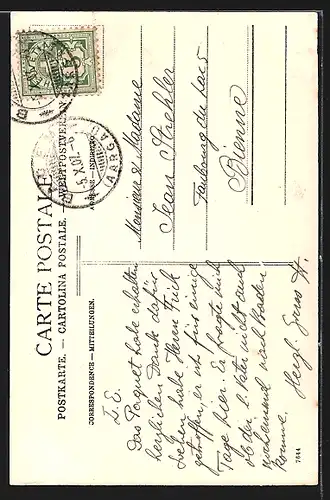 CARTE POSTALE
POSTKARTE. — CARTOLINA POSTALE. — WELTPOSTVEREIN
CORRESPONDENCE — MITTEILUNGEN.
ADRESSE
Monsieur & Madame
Jean Strehler
Faubourg du Lac 5
Bienne
L. E.
Das Paquet habe erhalten
herzlichen Dank dafür
habe Herrn Frick
getroffen, er ist für einige
Tage hier. Er fragte mich
ob der l. Vater nicht auch
nach Baden
komme.
Herzl. Gruss H.
5.X.07
(AARGAU)
5
7644